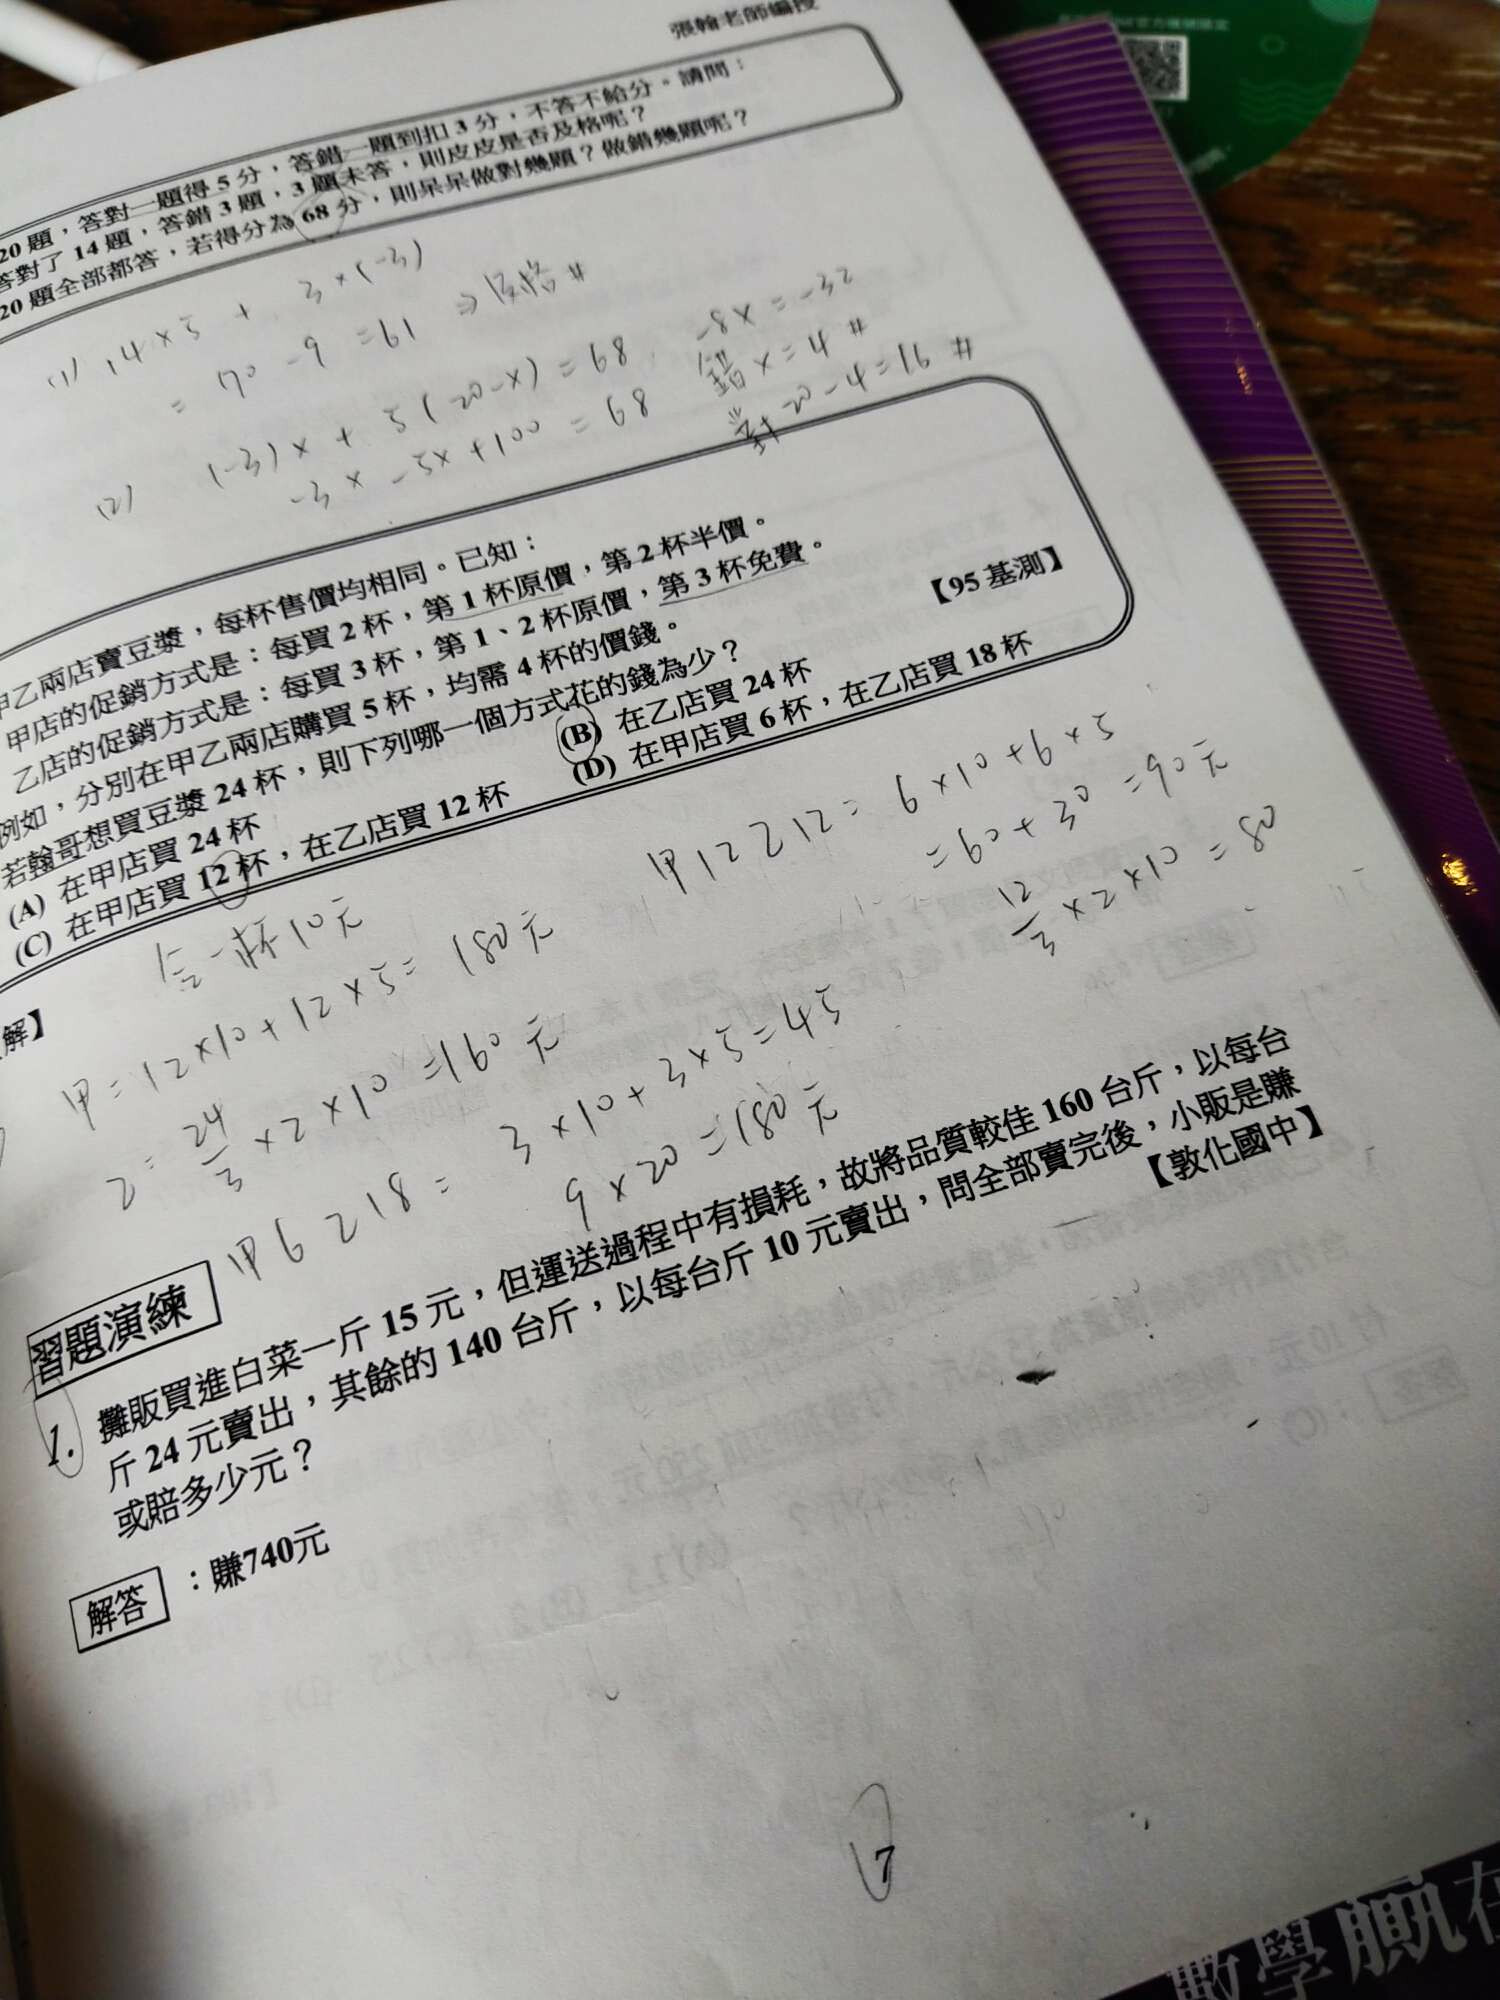 張翰老師編授
20 題，答對一題得 5 分，答錯一題到扣 3 分，不答不給分。請問：
答對了 14 題，答錯 3 題，3 題未答，則皮皮是否及格呢？
20 題全部都答，若得分為 68 分，則呆呆做對幾題？做錯幾題呢？
(1) 14×5 + 3×(-3)
= 70 - 9 = 61 ⇒ 及格 #
(2) (-3)x + 5(20-x) = 68
-3x -5x +100 = 68
-8x = -32
錯 x = 4 #
對 20-4=16 #
甲乙兩店賣豆漿，每杯售價均相同。已知：
甲店的促銷方式是：每買 2 杯，第 1 杯原價，第 2 杯半價。
乙店的促銷方式是：每買 3 杯，第 1、2 杯原價，第 3 杯免費。
例如，分別在甲乙兩店購買 5 杯，均需 4 杯的價錢。
若翰哥想買豆漿 24 杯，則下列哪一個方式花的錢為少？
【95 基測】
(A) 在甲店買 24 杯 (B) 在乙店買 24 杯
(C) 在甲店買 12 杯，在乙店買 12 杯 (D) 在甲店買 6 杯，在乙店買 18 杯
解】
令一杯10元
甲=12×10+12×5=180元
乙=24/3×2×10=160元
甲12乙12=6×10+6×5
=60+30=90元
12/3×2×10=80
甲6乙18=3×10+3×5=45
9×20=180元
習題演練
1. 攤販買進白菜一斤 15 元，但運送過程中有損耗，故將品質較佳 160 台斤，以每台
斤 24 元賣出，其餘的 140 台斤，以每台斤 10 元賣出，問全部賣完後，小販是賺
或賠多少元？
【敦化國中】
解答 ：賺740元
7
數學贏在